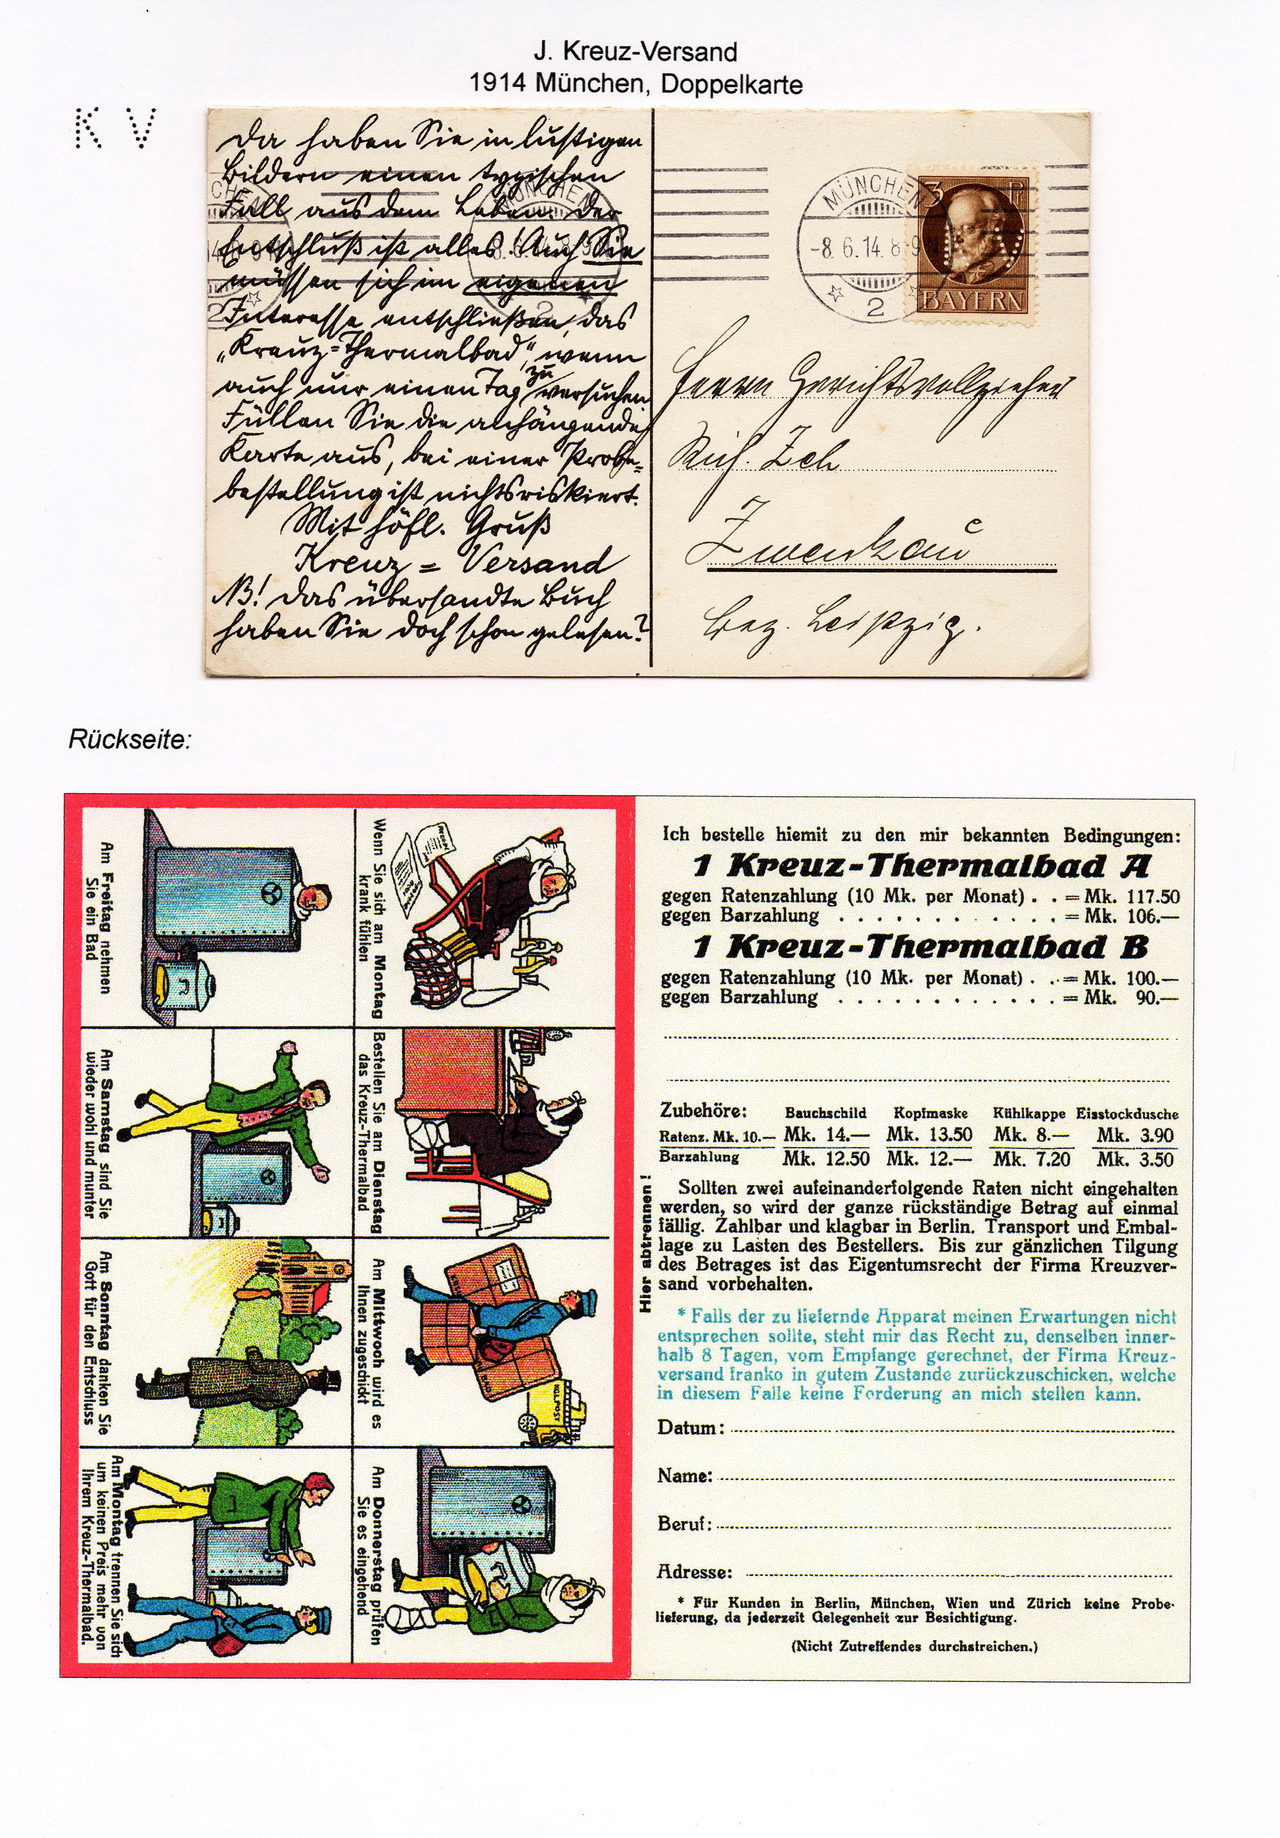 J. Kreuz-Versand
1914 München, Doppelkarte
K V
Da haben Sie in lustigen
Bildern einen typischen
Fall aus dem Leben. Der
Entschluß ist alles! Auch Sie
müssen sich im eigenen
Interesse entschließen, das
„Kreuz=Thermalbad", wenn
auch nur einen Tag zu versuchen.
Füllen Sie die anhängende
Karte aus, bei einer Probe=
bestellung ist nichts riskiert.
Mit höfl. Gruß
Kreuz = Versand
NB! Das übersandte Buch
haben Sie doch schon gelesen?
MÜNCHEN
-8.6.14. 8-9
2
3 P
BAYERN
Herrn Gerichtsvollzieher
Rich. Zeh
Zwenkau
Bez. Leipzig.
Rückseite:
Wenn Sie sich am Montag
krank fühlen
Bestellen Sie am Dienstag
das Kreuz-Thermalbad
Am Mittwoch wird es
Ihnen zugeschickt
KGL. POST
Am Donnerstag prüfen
Sie es eingehend
Am Freitag nehmen
Sie ein Bad
Am Samstag sind Sie
wieder wohl und munter
Am Sonntag danken Sie
Gott für den Entschluss
Am Montag trennen Sie sich
um keinen Preis mehr von
Ihrem Kreuz-Thermalbad.
Hier abtrennen!
Ich bestelle hiemit zu den mir bekannten Bedingungen:
1 Kreuz-Thermalbad A
gegen Ratenzahlung (10 Mk. per Monat) . . = Mk. 117.50
gegen Barzahlung . . . . . . . . . . . . = Mk. 106.—
1 Kreuz-Thermalbad B
gegen Ratenzahlung (10 Mk. per Monat) . . = Mk. 100.—
gegen Barzahlung . . . . . . . . . . . . = Mk. 90.—
Zubehöre: Bauchschild Kopfmaske Kühlkappe Eisstockdusche
Ratenz. Mk. 10.— Mk. 14.— Mk. 13.50 Mk. 8.— Mk. 3.90
Barzahlung Mk. 12.50 Mk. 12.— Mk. 7.20 Mk. 3.50
Sollten zwei aufeinanderfolgende Raten nicht eingehalten
werden, so wird der ganze rückständige Betrag auf einmal
fällig. Zahlbar und klagbar in Berlin. Transport und Embal-
lage zu Lasten des Bestellers. Bis zur gänzlichen Tilgung
des Betrages ist das Eigentumsrecht der Firma Kreuzver-
sand vorbehalten.
* Falls der zu liefernde Apparat meinen Erwartungen nicht
entsprechen sollte, steht mir das Recht zu, denselben inner-
halb 8 Tagen, vom Empfange gerechnet, der Firma Kreuz-
versand franko in gutem Zustande zurückzuschicken, welche
in diesem Falle keine Forderung an mich stellen kann.
Datum:
Name:
Beruf:
Adresse:
* Für Kunden in Berlin, München, Wien und Zürich keine Probe-
lieferung, da jederzeit Gelegenheit zur Besichtigung.
(Nicht Zutreffendes durchstreichen.)